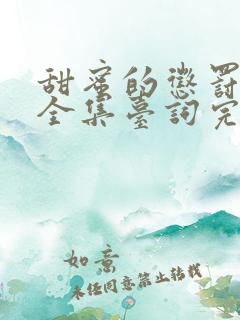 甜蜜的懲罰
全集臺詞完
如意
未经同意禁止转载